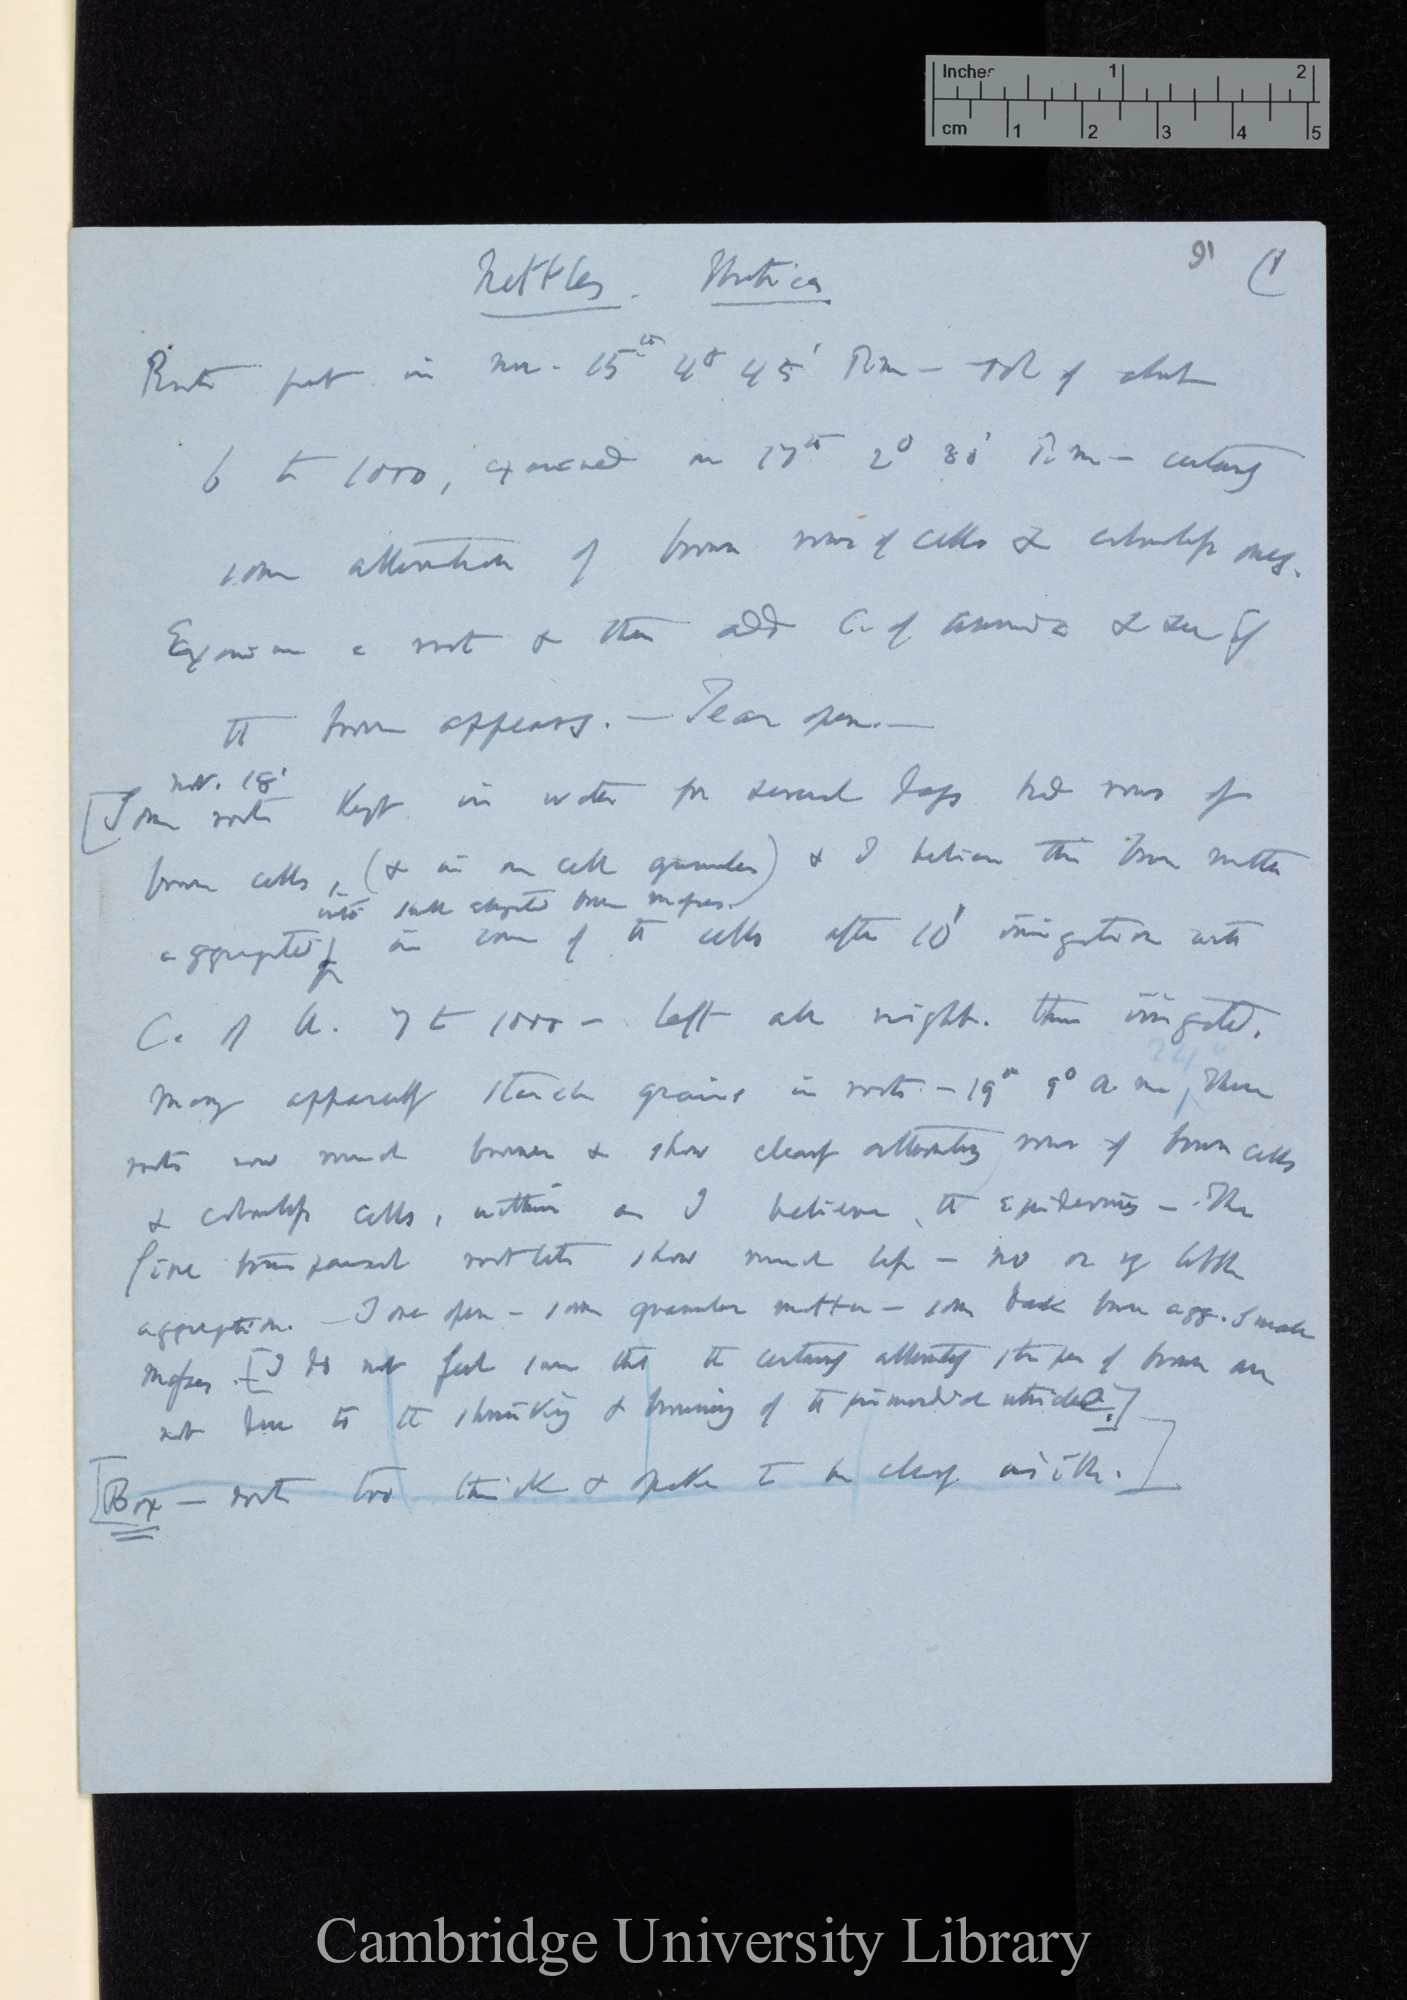 Inches 1 2
cm 1 2 3 4 5
91 (1
Nettles. Urtica
Roots put in Nov. 15th 4° 45' P.m — sol of
6 to 1000, examined on 17th 2° 30' P.m — certainly
some alternation of brown rows of cells & colourless ones.
Examine a root & then add C. of Ammonia & see if
the brown appears. — Tear open. —
Nov. 18'
[Some roots kept in water for several days had rows of
brown cells, (& in one cell granular) & I believe this brown matter
into small brown masses.
aggregated in some of the cells after 10' irrigation with
C. of A. 7 to 1000 — left all night. then irrigated.
Many apparently starch grains in roots. — 19th 9° a.m 24° These
roots now much browner & show clearly alternating rows of brown cells
& colourless cells, within as I believe, the epidermis — The
fine transparent rootlets show much less — no or vy little
aggregation. — Tore open — some granular matter — some dark brown agg. small
masses. [I do not feel sure that the certainly alternating stripes of brown are
not due to the shrinking & browning of the primordial utricle.]
[Box — roots too thick & opake to be clearly visible.]
Cambridge University Library